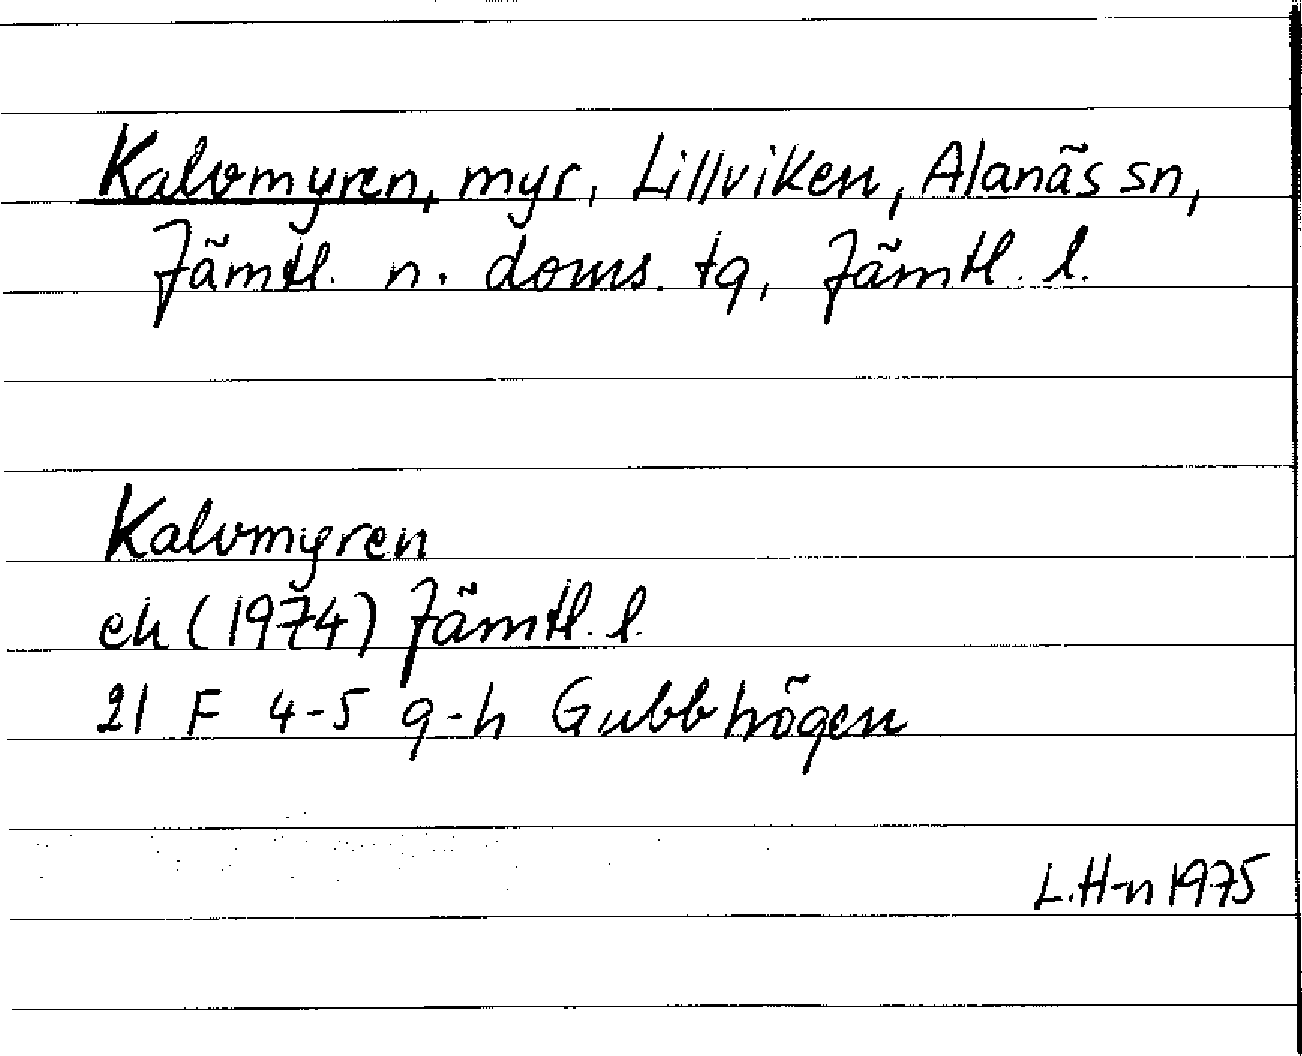 Kalvmyren, myr, Lillviken, Alanäs sn,
Jämtl. n. doms. tg, Jämtl. l.
Kalvmyren
ek (1974) Jämtl. l.
21 F 4-5 g-h Gubbhögen
L.H-n 1975